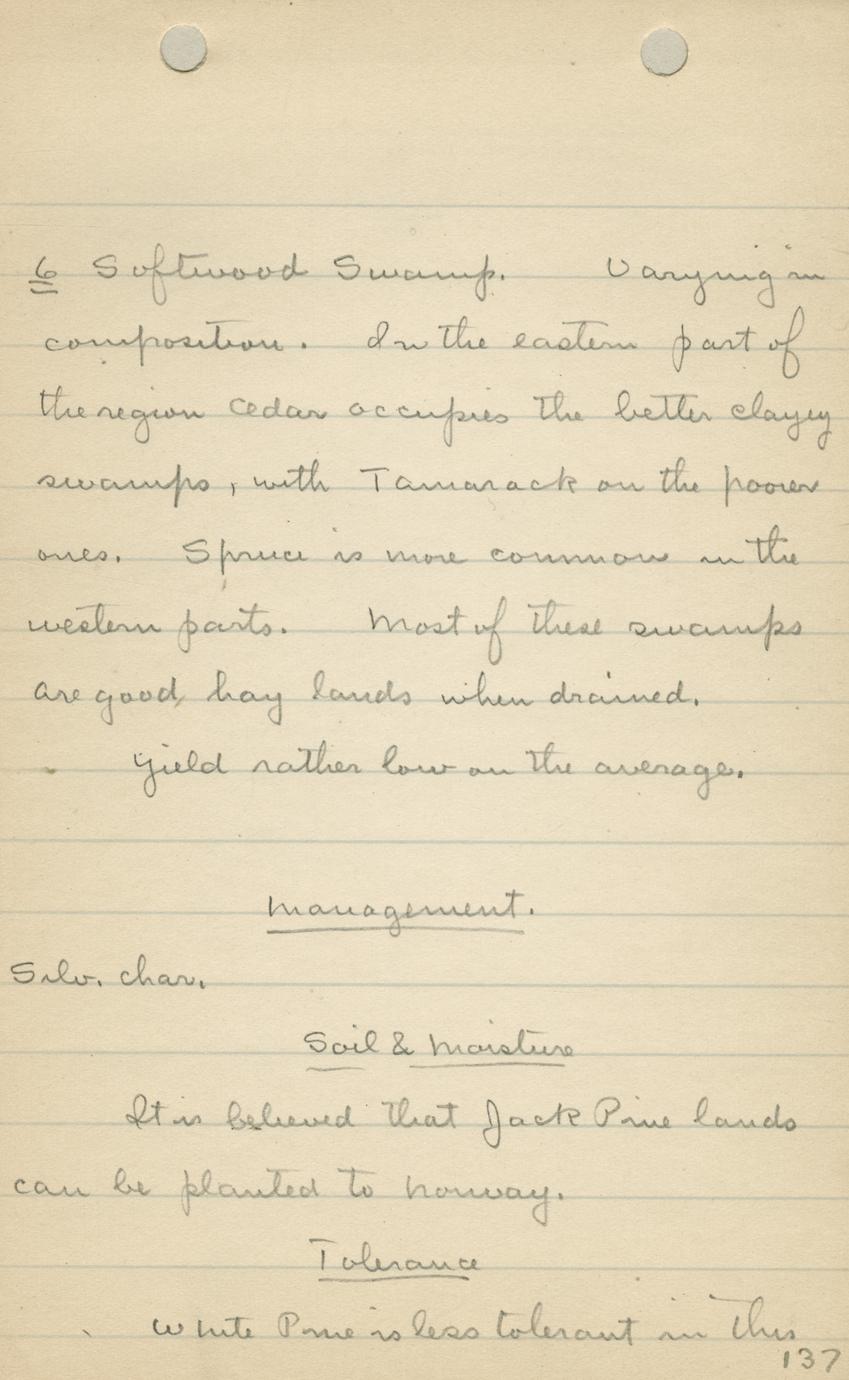 6 Softwood Swamp. Varying in
composition. In the eastern part of
the region cedar occupies the better clayey
swamps, with Tamarack on the poorer
ones. Spruce is more common in the
western parts. Most of these swamps
are good hay lands when drained.
Yield rather low on the average.
Management.
Silv. char.
Soil & Moisture
It is believed that Jack Pine lands
can be planted to Norway.
Tolerance
White Pine is less tolerant in this
137